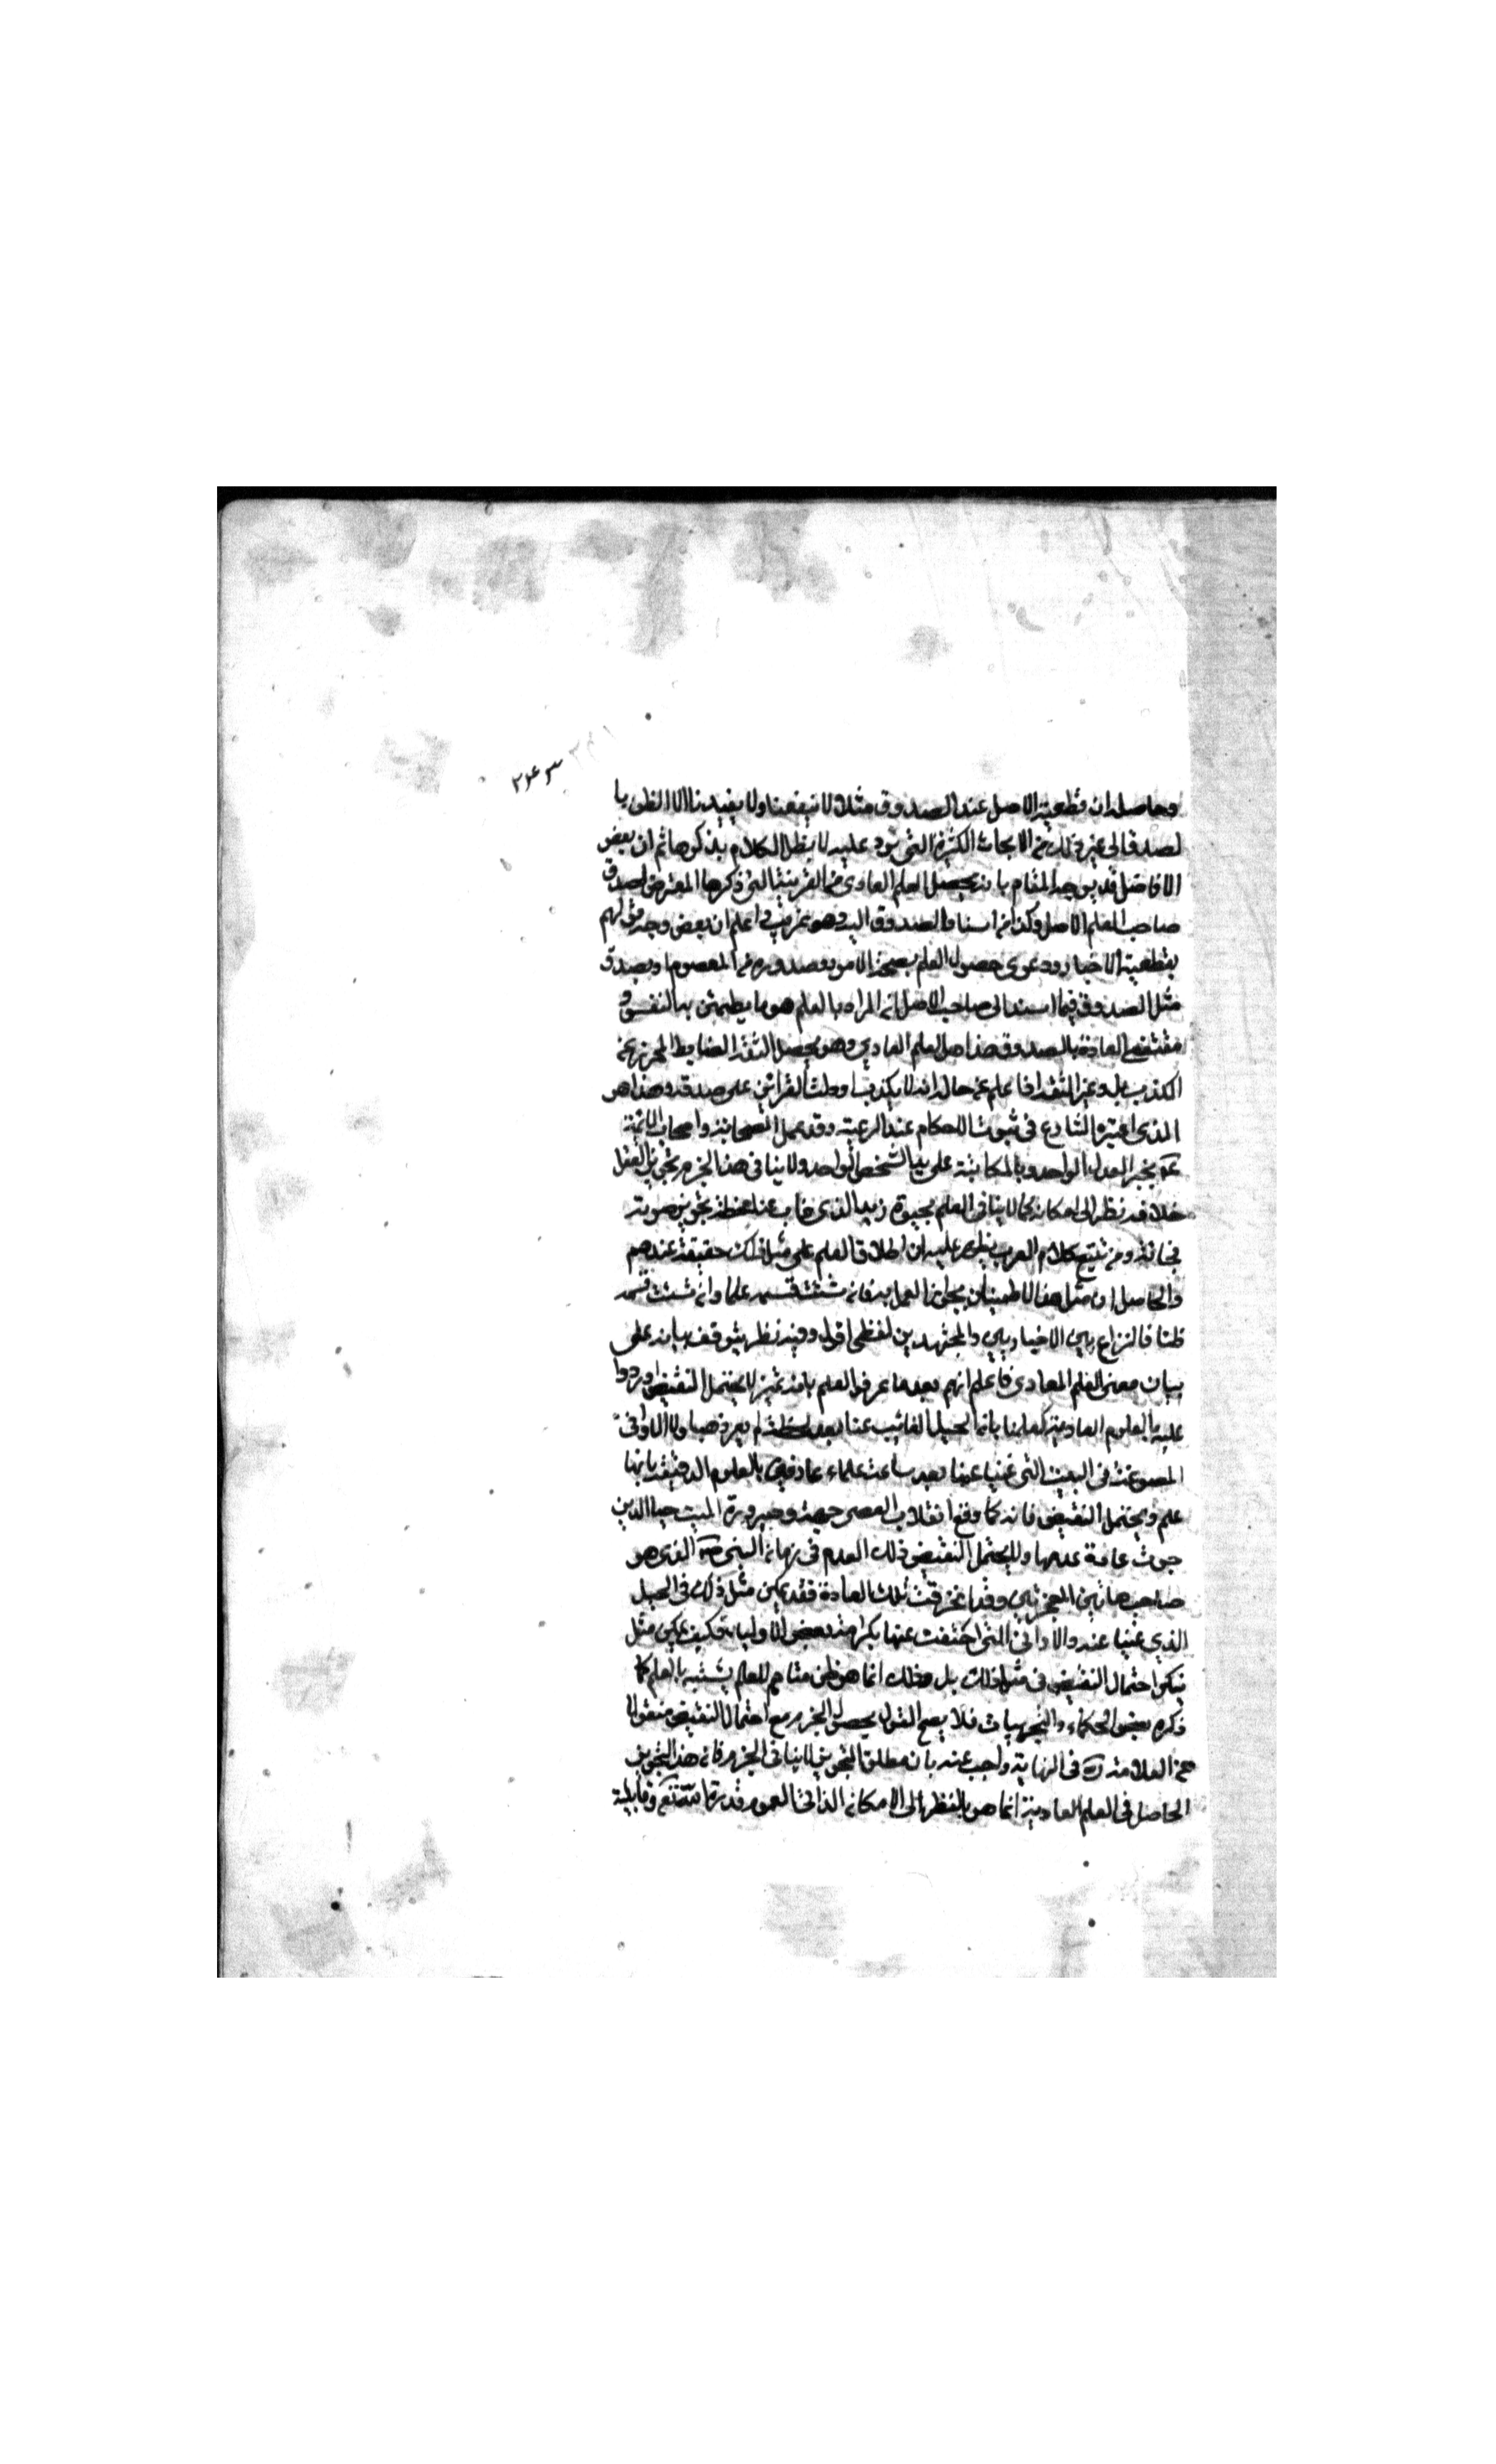 ٢٤٣
وحاصله ان قطعية الاصل عند الصدوق مثلا لا تنفعنا ولا يفيدنا الا الظن با
لصدق الى غير ذلك من الابحاث الكثيرة التي ترد عليه لا نطل الكلام بذكرها ثم ان بعض
الافاضل قد يوجه المقام بانه يحصل العلم العادي من القرينة التي ذكرها المعترض لصدق
صاحب العلم الاصل وكذا من اسناد الصدوق اليه وهو غريب واعلم ان بعض وجه قولهم
بقطعية الاخبار ودعوى حصول العلم بصحة الامور وصدوره من المعصوم او بصدق
مثل الصدوق فيما اسند الى صاحب الاصل ان المراد بالعلم هو ما يطمئن به النفس و
مقتضى العادة بالصدوق هذا هو العلم العادي وهو يحصل الثقة الضابط المتحرز عن
الكذب بل وغير الثقة اذا علم من حاله انه لا يكذب او دلت القرائن على صدقه وهذا هو
الذي اعتبره الشارع في ثبوت الاحكام عند الرعية وقد عمل الصحابة واصحاب الائمة
عم بخبر العدل الواحد وبالمكاتبة على يد الشخص الواحد ولا ينافي هذا الجزم تجويز العقل
خلافه نظرا الى امكانه كما لا ينافي العلم بحيوة زيد الذي غاب عنا لحظة تجويز موته
فجائة ومن تتبع كلام العرب يظهر عليه ان اطلاق العلم على مثل ذلك حقيقة عندهم
والحاصل ان مثل هذا الاطمينان يجوز العمل به فان شئت قسمه علما وان شئت قسمه
ظنا فالنزاع بين الاخباريين والمجتهدين لفظي اقول وفيه نظر يتوقف بيانه على
بيان معنى العلم العادي فاعلم انهم بعد ما عرفوا العلم بانه تميز لا يحتمل النقيض اوردوا
عليه بالعلوم العادية كعلمنا بان الجبل الغائب عنا بعد لحظة لم يعد ذهبا ولا الاواني
المصوغة في البيت التي غبنا عنها بعد ساعة علماء عارفين بالعلوم الدقيقة بانها
علم ويحتمل النقيض فانه كما وقع انقلاب العصى حية وصيرورة الميت حيا الذين
جرت عادة عدمها وللحتمل النقيض ذلك العدم في زمان النبي ص الذي هو
صاحب هاتين المعجزتين وقد انخرقت تلك العادة فقد يمكن مثل ذلك في الجبل
الذي غبنا عنه والاواني التي اختفت عنها بكرامة بعض الاولياء فكيف يمكن مثل
ينكر احتمال النقيض في مثل ذلك بل وذلك انما هو ظن متاخم للعلم يشتبه بالعلم كما
ذكره بعض الحكماء والتجربيات فلا يصح القول بحصول الجزم مع احتمال النقيض منقول
عن العلامة ره في النهاية واجيب عنه بان مطلق التجويز لا ينافي الجزم فان هذا التجويز
الحاصل في العلم العادية انما هو بالنظر الى الامكان الذاتي لعموم قدرة الله تعالى وقابلية